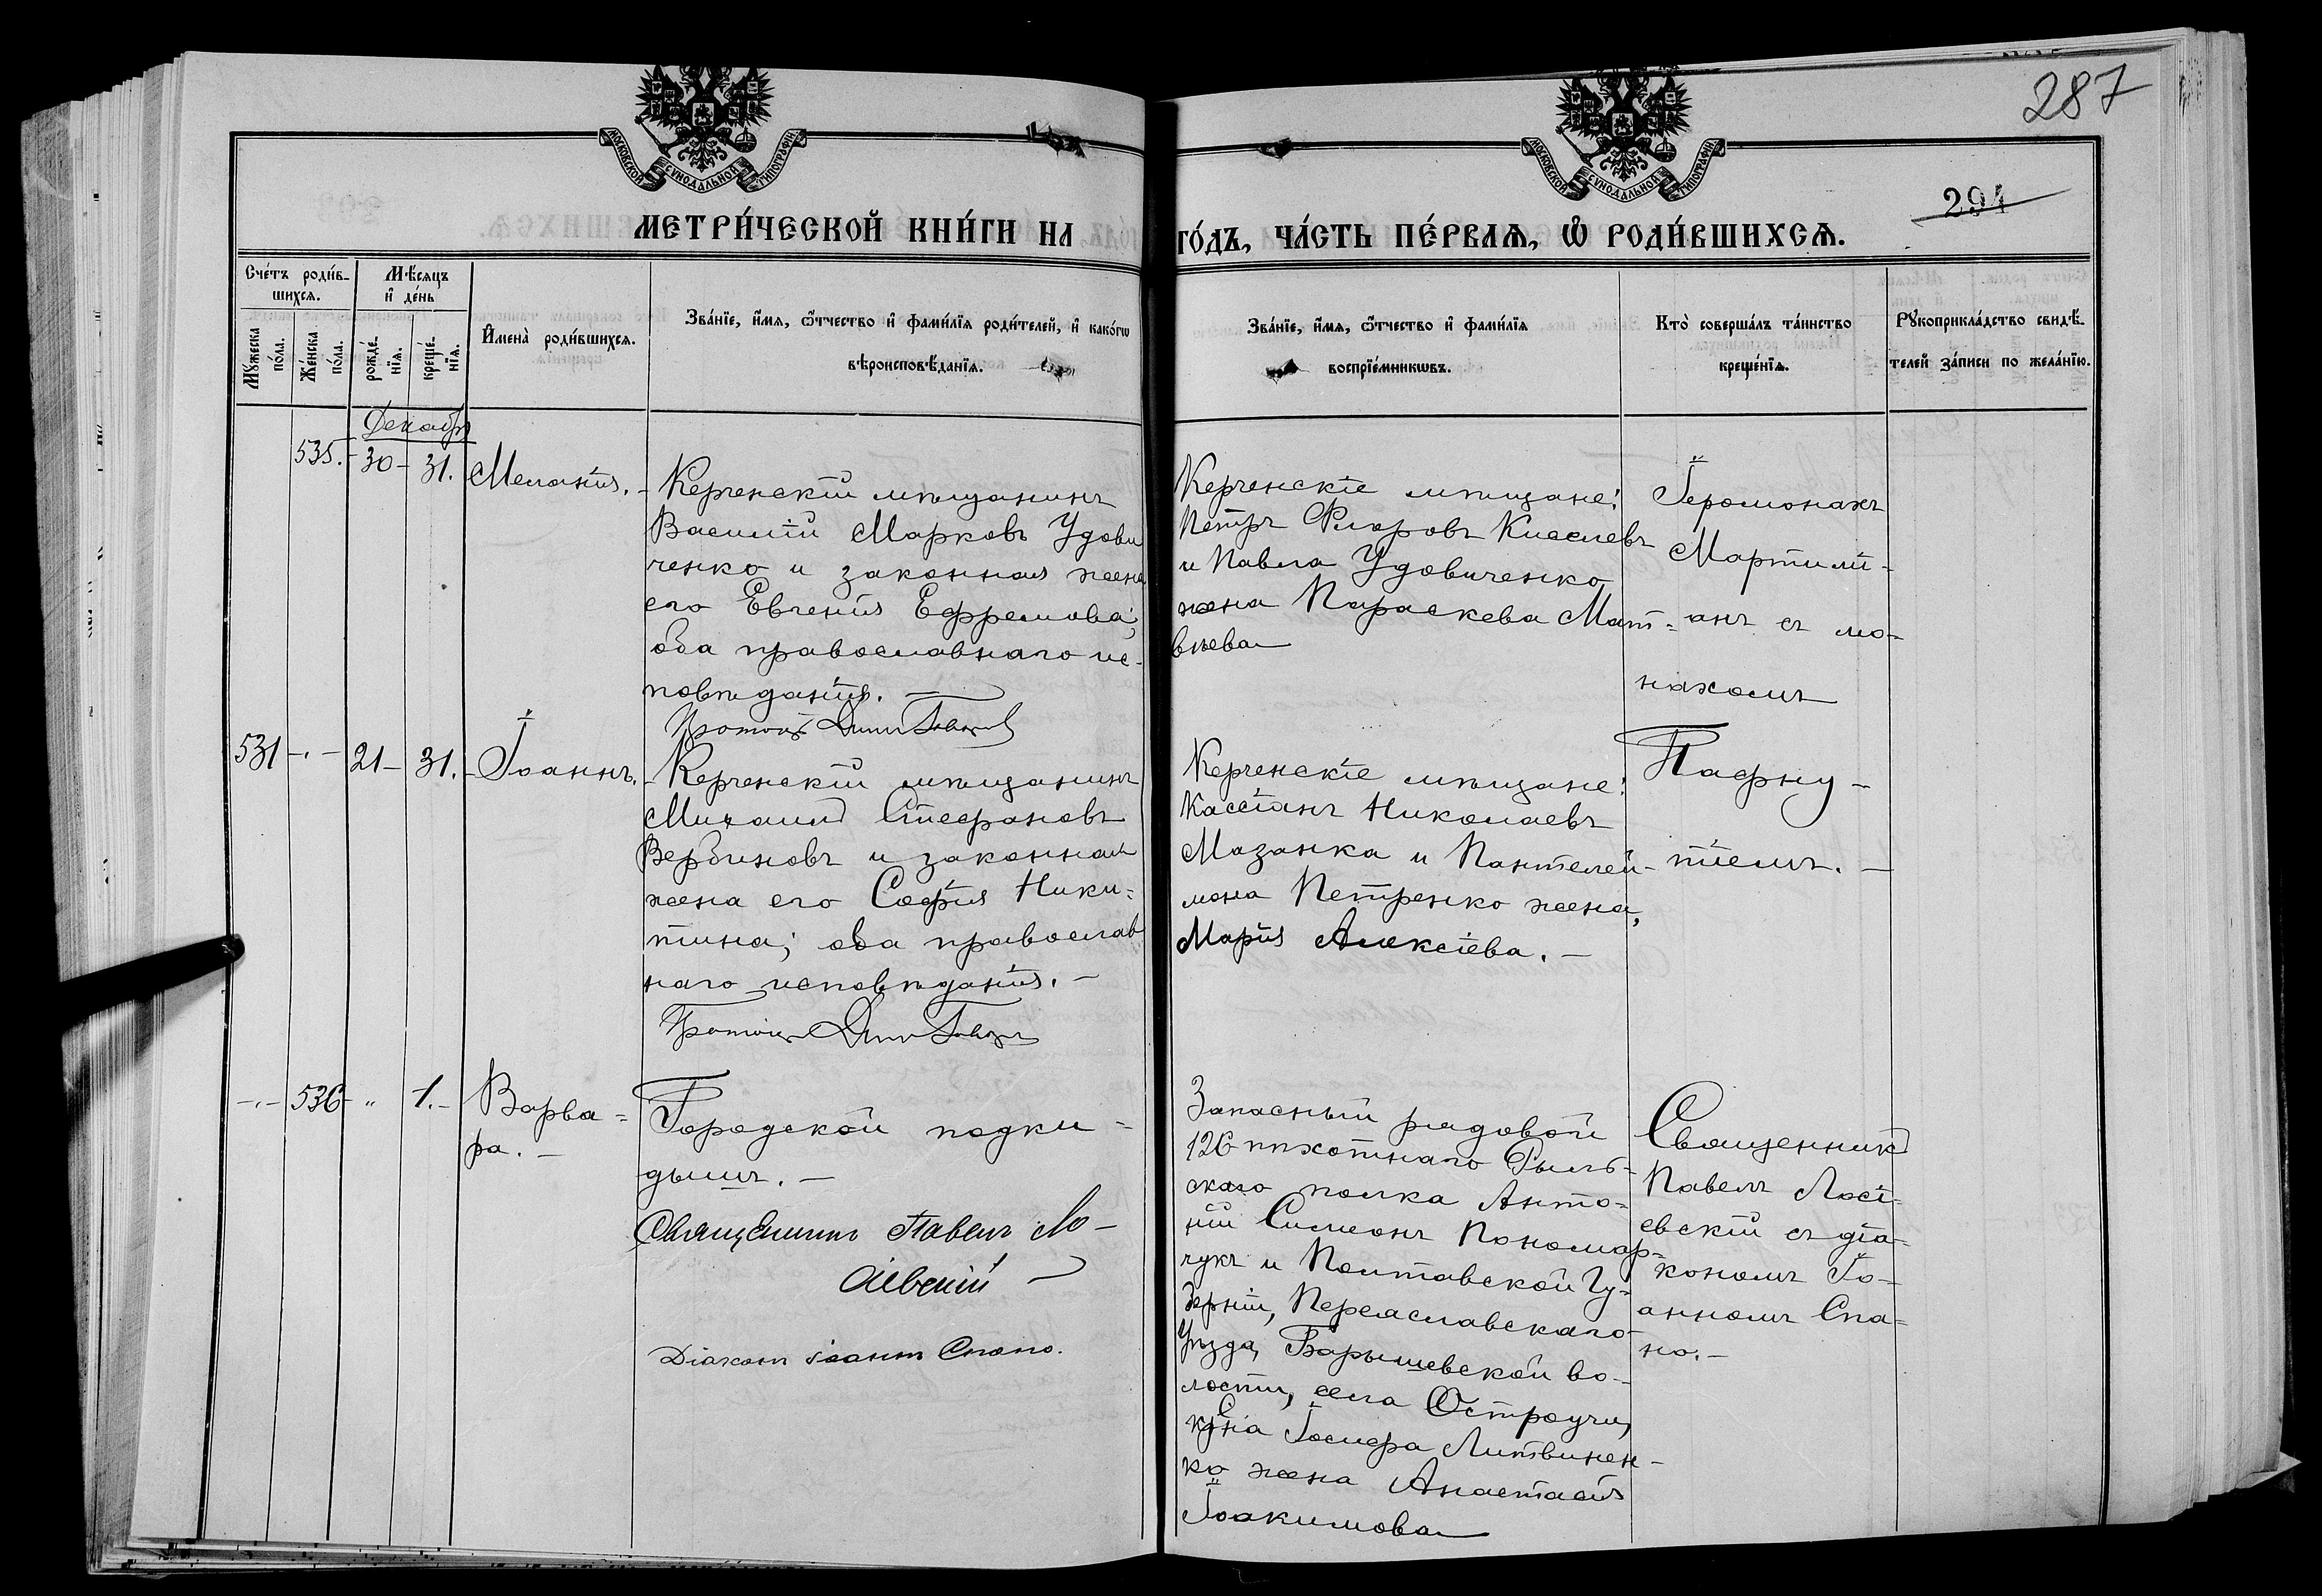 287
294
МОСКОВСКОЙ СѴНОДАЛЬНОЙ ТИПОГРАФІИ
МОСКОВСКОЙ СѴНОДАЛЬНОЙ ТИПОГРАФІИ
МЕТРИ́ЧЕСКОЙ КНИ́ГИ НА
ГО́ДЪ, ЧА́СТЬ ПЕ́РВАѦ, Ѽ РОДИ́ВШИХСѦ.
Сче́тъ роди́в-
шихсѧ.
Мꙋжеска
по́ла.
Же́нска
по́ла.
Мѣ́сѧцъ
и҆ де́нь
рожде́-
нїѧ.
креще́-
нїѧ.
И҆мена̀ роди́вшихсѧ.
Зва́нїе, и҆́мѧ, ѻ҆́тчество и҆ фами́лїѧ роди́телей, и҆ како́гѡ
вѣроисповѣ́данїѧ.
Зва́нїе, и҆́мѧ, ѻ҆́тчество и҆ фами́лїѧ
воспрїе́мникѡвъ.
Кто̀ соверша́лъ та́инство
креще́нїѧ.
Рꙋкоприкла́дство свидѣ́-
телей за́писи по жела́нїю.
Декабрь
535. - 30 - 31. Меланія. -
Керченскій мѣщанинъ
Василій Марковъ Удови
ченко и законная жена
его Евгенія Ефремова;
оба православнаго ис-
повѣданія. -
Керченскіе мѣщане:
Петръ Флоровъ Киселевъ
и Павла Удовиченко
жена Параскева Мат-
вѣева
Іеромонахъ
Мартили-
анъ съ мо-
нахомъ
Пафну-
тіемъ. -
531 - . - 21 - 31. - Іоаннъ. -
Керченскій мѣщанинъ
Михаилъ Стефановъ
Вербиновъ и законная
жена его Софія Ники-
тина; оба православ
наго исповѣданія. -
Керченскіе мѣщане:
Кассіанъ Николаевъ
Мазанка и Пантелей-
мона Петренко жена,
Марія Алексіева. -
- . - 536 - „ 1. - Варва-
ра. -
Городской подки-
дышъ. -
Священникъ Павелъ Ло-
Діаконъ Іоаннъ Спано.
Запасный рядовой
126 пѣхотнаго Рыль-
скаго полка Анто-
ній Симеонъ Пономар-
чукъ и Полтавской Гу-
берніи, Переяславскаго
Уѣзда, Барышевской во-
лости, села Остроучи,
Іосифа Литвинен-
ко жена Анастасія
Іоакимова
Священникъ
Павелъ Лосі-
евскій съ діа-
кономъ Іо-
анномъ Спа-
но. -